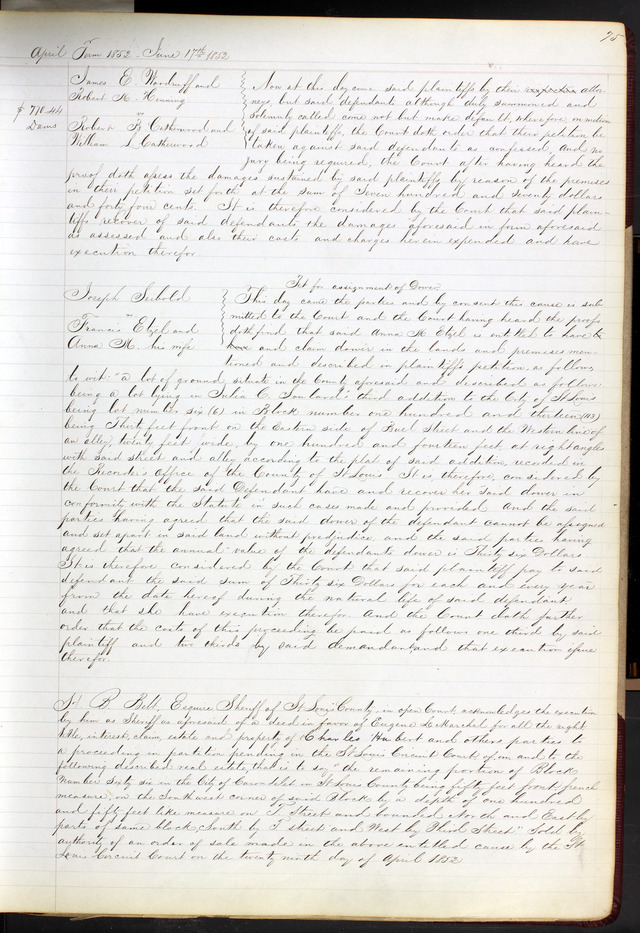 75
April Term 1852 June 17th 1852
James E. Woodruff and
Robert K. Henning
vs
Robert F. Catherwood and
William L. Catherwood
$770.44
Dams
Now at this day come said plaintiffs by their attor-
neys, but said defendants although duly summoned and
solemnly called, come not but make default, wherefore, on motion
of said plaintiffs, the Court doth order that their petition be
taken against said defendants as confessed, and no
jury being required, the Court after having heard the
proof doth assess the damages sustained by said plaintiffs by reason of the premises
in their petition set forth, at the sum of Seven hundred and seventy dollars
and forty four cents. It is therefore considered by the Court that said plain-
tiffs recover of said defendants the damages aforesaid in form aforesaid
as assessed and also their costs and charges herein expended and have
execution therefor.
Joseph Seibold
vs
Francis Etzel and
Anna M. his wife
Pet for assignment of Dower
This day came the parties and by consent this cause is sub-
mitted to the Court and the Court having heard the proofs
doth find that said Anna M. Etzel is entitled to have &
and claim dower in the lands and premises men-
tioned and described in plaintiff's petition, as follows,
to wit: "a lot of ground situate in the County aforesaid and described as follows
being a lot lying in Julia C. Soulard's third addition to the City of St Louis
being lot number six (6) in Block number one hundred and thirteen (113)
being Thirty feet front on the Eastern side of Buel Street and the Western line of
an alley, twenty feet wide, by one hundred and fourteen feet, at right angles
with said street and alley according to the plat of said addition, recorded in
the Recorder's Office of the County of St Louis. It is, therefore, considered by
the Court that the said Defendant have and recover her said dower in
conformity with the Statute in such cases made and provided. And the said
parties having agreed that the said dower of the defendant cannot be assigned
and set apart in said land without prejudice and the said parties having
agreed that the annual value of the defendants dower is Thirty six Dollars
It is therefore considered by the Court that said plaintiff pay to said
defendant the said sum of Thirty six Dollars for each and every year
from the date hereof during the natural life of said defendant
and that she have execution therefor. And the Court doth further
order that the costs of this proceeding be paid as follows one third by said
plaintiff and two thirds by said demandant and that execution issue
therefor.
B Bell, Esquire Sheriff of St Louis County, in open Court, acknowledges the execution
by him as Sheriff as aforesaid of a deed in favor of Eugene LeMarchal for all the right
title, interest, claim, estate and property of Charles Hubert and others parties to
a proceeding in partition pending in the St Louis Circuit Court, of, in and to the
following described real estate, that is to say "the remaining portion of Block
Number Sixty six in the City of Carondelet in St Louis County being fifty feet front, french
measure, on the Southwest corner of said Block by a depth of one hundred
and fifty feet like measure on T street and bounded North and East by
parts of same block, South by T street and West by Third Street." Sold by
authority of an order of sale made in the above entitled cause by the St
Louis Circuit Court on the twenty ninth day of April 1852